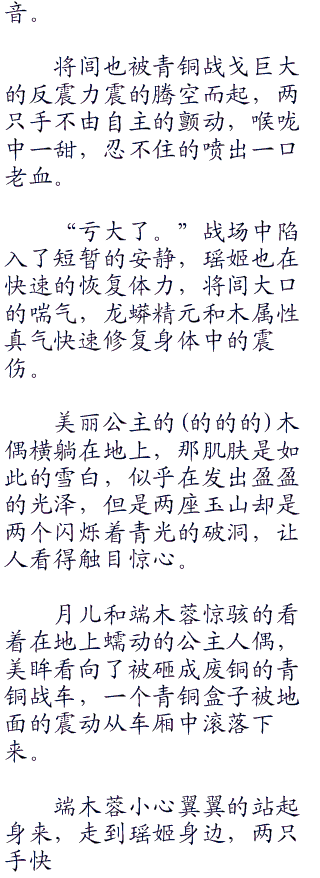 音。
将闾也被青铜战戈巨大
的反震力震的腾空而起，两
只手不由自主的颤动，喉咙
中一甜，忍不住的喷出一口
老血。
“亏大了。”战场中陷
入了短暂的安静，瑶姬也在
快速的恢复体力，将闾大口
的喘气，龙蟒精元和木属性
真气快速修复身体中的震
伤。
美丽公主的(的的的)木
偶横躺在地上，那肌肤是如
此的雪白，似乎在发出盈盈
的光泽，但是两座玉山却是
两个闪烁着青光的破洞，让
人看得触目惊心。
月儿和端木蓉惊骇的看
着在地上蠕动的公主人偶，
美眸看向了被砸成废铜的青
铜战车，一个青铜盒子被地
面的震动从车厢中滚落下
来。
端木蓉小心翼翼的站起
身来，走到瑶姬身边，两只
手快